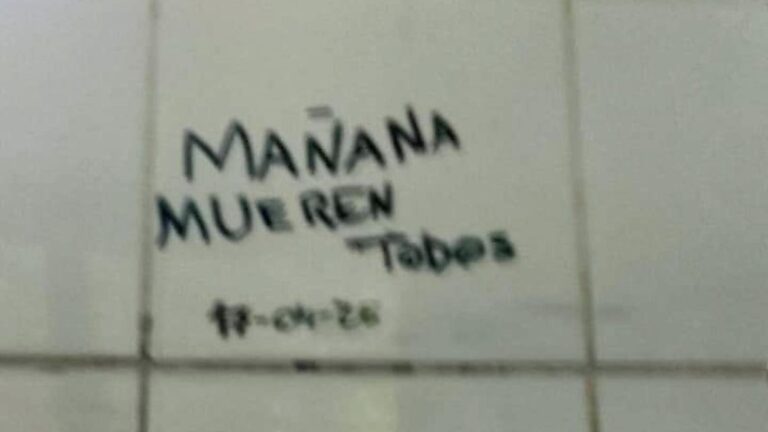 MAÑANA
MUEREN
Todos
17-04-26